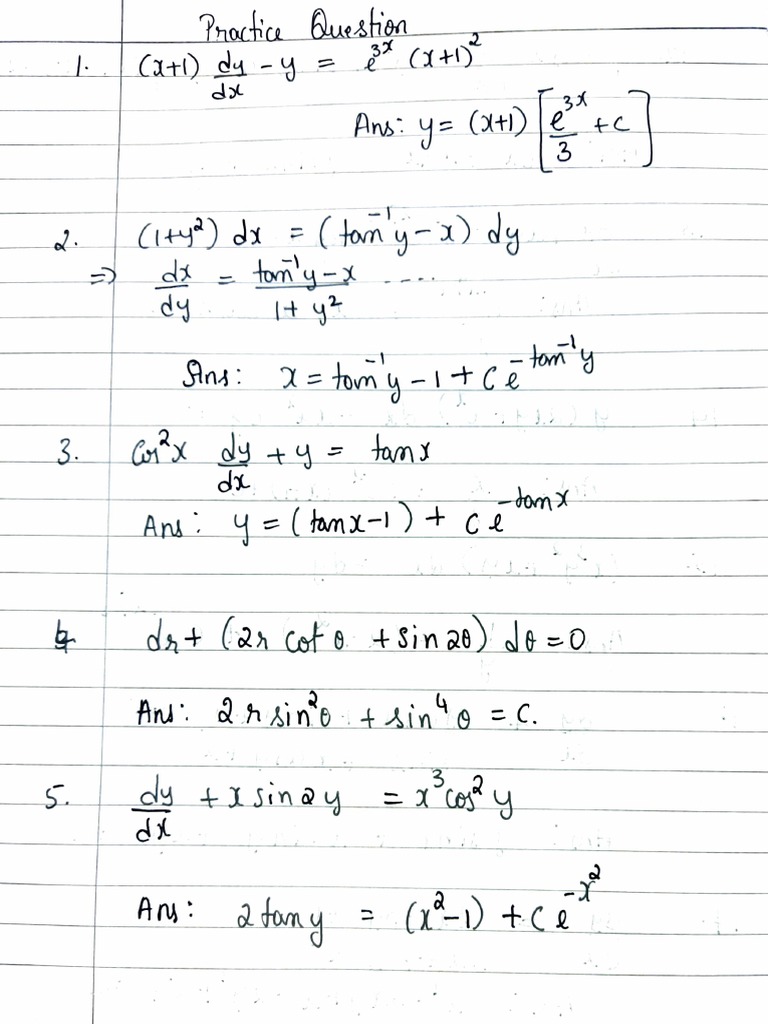 Practice Question
1. (x+1) dy/dx - y = e^3x (x+1)^2
Ans: y = (x+1) [e^3x/3 + c]
2. (1+y²) dx = (tan⁻¹y - x) dy
⇒ dx/dy = (tan⁻¹y - x)/(1 + y²) ....
Ans: x = tan⁻¹y - 1 + C e^(-tan⁻¹y)
3. Cos²x dy/dx + y = tan x
Ans: y = (tanx - 1) + C e^(-tanx)
4 dr + (2r cot θ + sin 2θ) dθ = 0
Ans: 2 r sin²θ + sin⁴θ = C.
5. dy/dx + x sin 2y = x³ cos² y
Ans: 2 tan y = (x² - 1) + C e^(-x²)